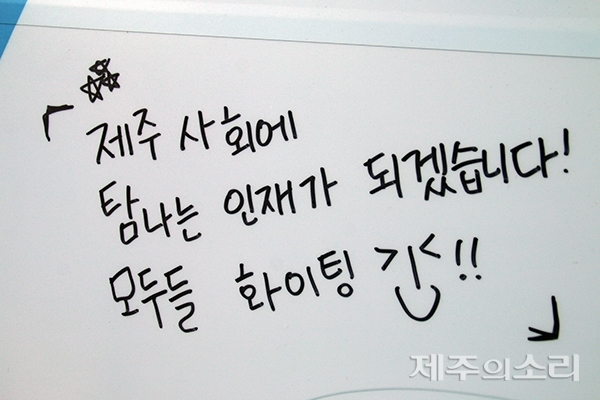 「제주 사회에
탐나는 인재가 되겠습니다!
모두들 화이팅 !!」
제주의소리